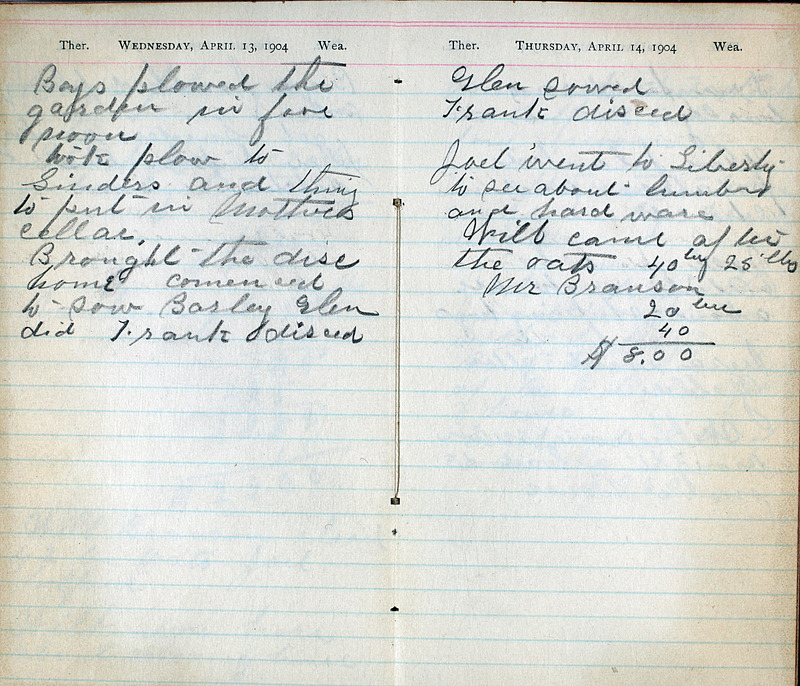 Ther. Wednesday, April 13, 1904 Wea.
Boys plowed the
garden in fore
noon
took plow to
Ginders and thing
to put in Mothers
cellar.
Brought the disc
home comenced
to sow Barley Glen
did Frank disced
Ther. Thursday, April 14, 1904 Wea.
Glen sowed
Frank disced
Joel went to Liberty
to see about lumber
and hard ware
Will came after
the oats 40 bu 25 lbs
Mr Branson
20 bu
40
$ 8.00